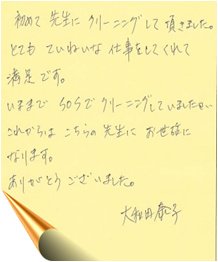 初めて 先生に クリーニングして 頂きました。
とても ていねいな 仕事をしてくれて
満足です。
いままで SOSで クリーニングしていましたが
これからは こちらの 先生に お世話に
なります。
ありがとう ございました。
大和田 恭子